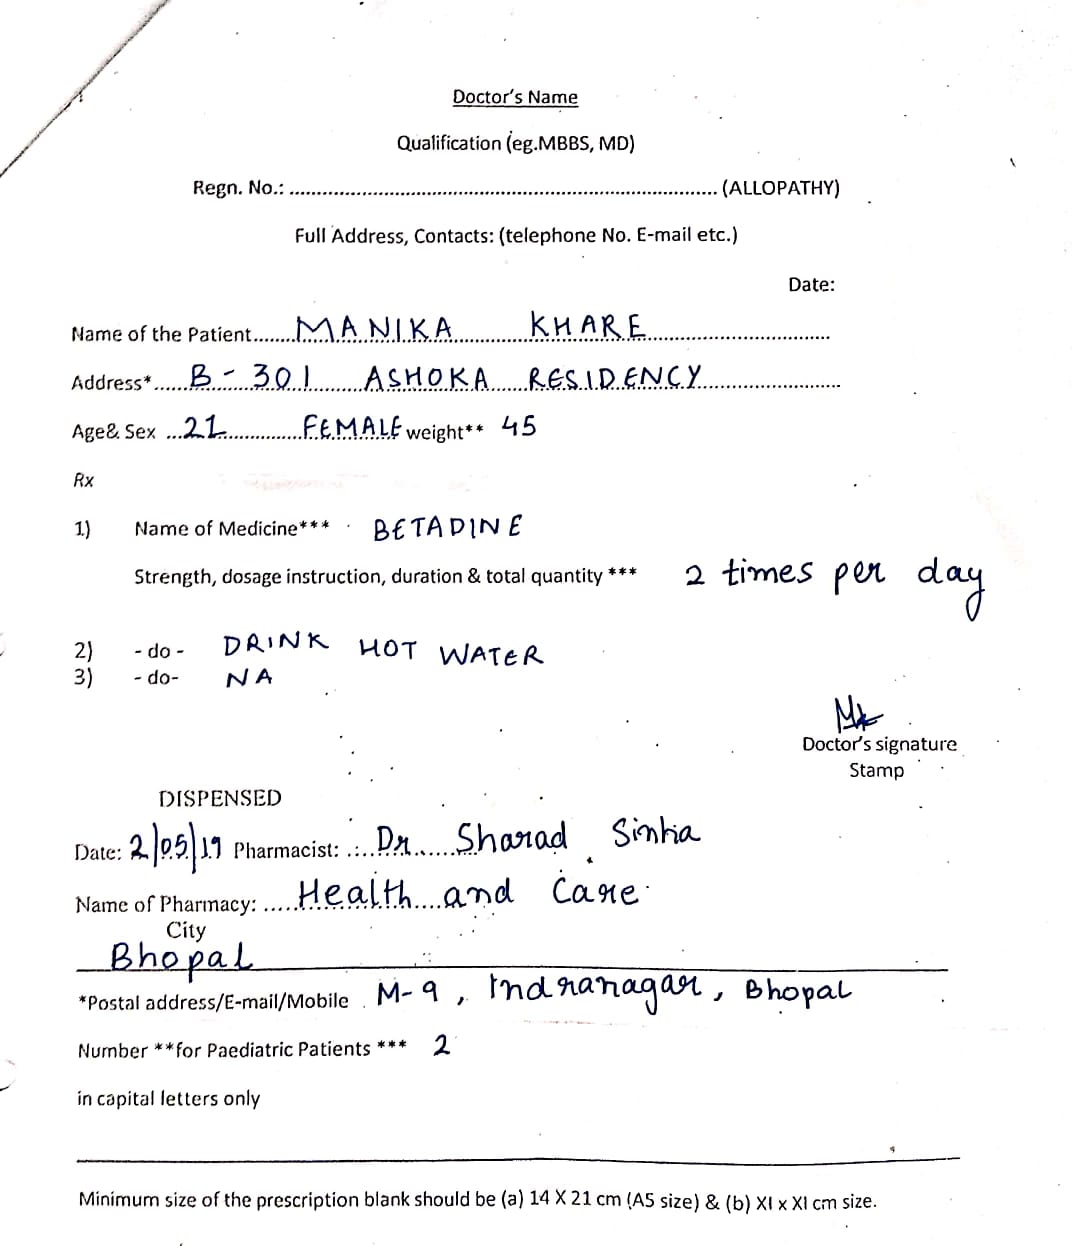 Doctor's Name
Qualification (eg.MBBS, MD)
Regn. No.: ........................................................................... (ALLOPATHY)
Full Address, Contacts: (telephone No. E-mail etc.)
Date:
Name of the Patient........MANIKA............KHARE................................
Address*......B - 301........ASHOKA......RESIDENCY........................
Age& Sex ...21.............FEMALE weight** 45
Rx
1) Name of Medicine*** BETADINE
Strength, dosage instruction, duration & total quantity *** 2 times per day
2) - do - DRINK HOT WATER
3) - do- NA
Doctor's signature
Stamp
DISPENSED
Date: 2/05/19 Pharmacist: .....Dr.......Sharad Sinha
Name of Pharmacy: .....Health....and Care
City
Bhopal
*Postal address/E-mail/Mobile M-9, Indranagar, Bhopal
Number **for Paediatric Patients *** 2
in capital letters only
Minimum size of the prescription blank should be (a) 14 X 21 cm (A5 size) & (b) XI x XI cm size.